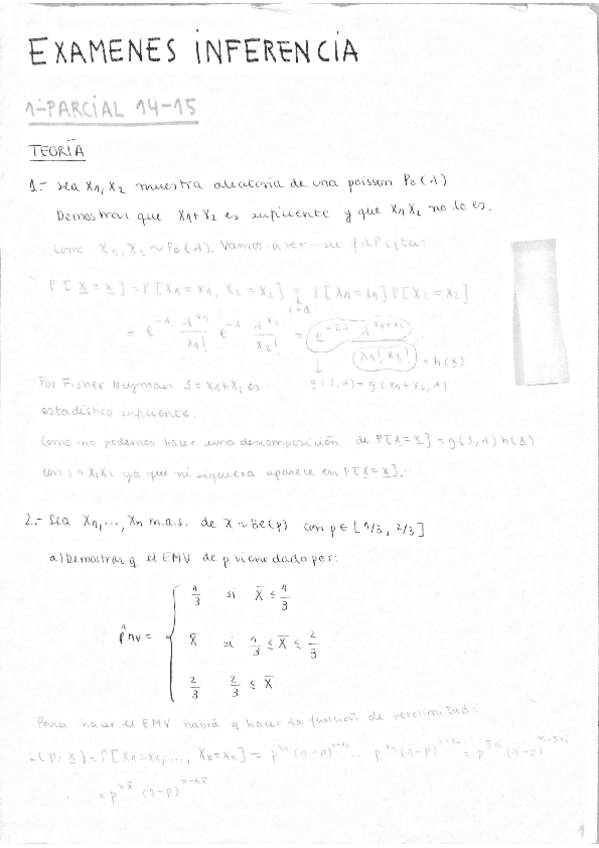 EXAMENES INFERENCIA
1-PARCIAL 14-15
TEORÍA
1.- Sea X1, X2 muestra aleatoria de una poisson Po(λ)
Demostrar que X1+X2 es suficiente y que X1X2 no lo es.
Como X1, X2 ~ Po(λ). Vamos a ver su fdp cjta:
P[X=x] = P[X1=x1, X2=x2] = P[X1=x1] P[X2=x2]
i+d
= e^-λ λ^x1/x1! e^-λ λ^x2/x2! = e^-2λ λ^x1+x2 / x1! x2! = h(x)
g(S,λ)=g(x1+x2,λ)
Por Fisher Neyman S = X1+X2 es
estadístico suficiente.
Como no podemos hacer una descomposición de P[X=x] = g(S,λ) h(x)
con S = X1X2 ya que ni siquiera aparece en P[X=x].
2.- Sea X1,..., Xn m.a.s. de X ~ Be(p) con p ∈ [1/3, 2/3]
a) Demostrar q el EMV de p viene dado por:
1/3 si X̄ ≤ 1/3
p̂MV = X̄ si 1/3 ≤ X̄ ≤ 2/3
2/3 2/3 ≤ X̄
Para hacer el EMV habrá q hacer la función de verosimilitud:
L(p; x) = P[X1=x1,..., Xn=xn] = p^x1 (1-p)^1-x1 ... p^xn (1-p)^1-xn = p^Σxi (1-p)^n-Σxi
= p^nx̄ (1-p)^n-nx̄
1